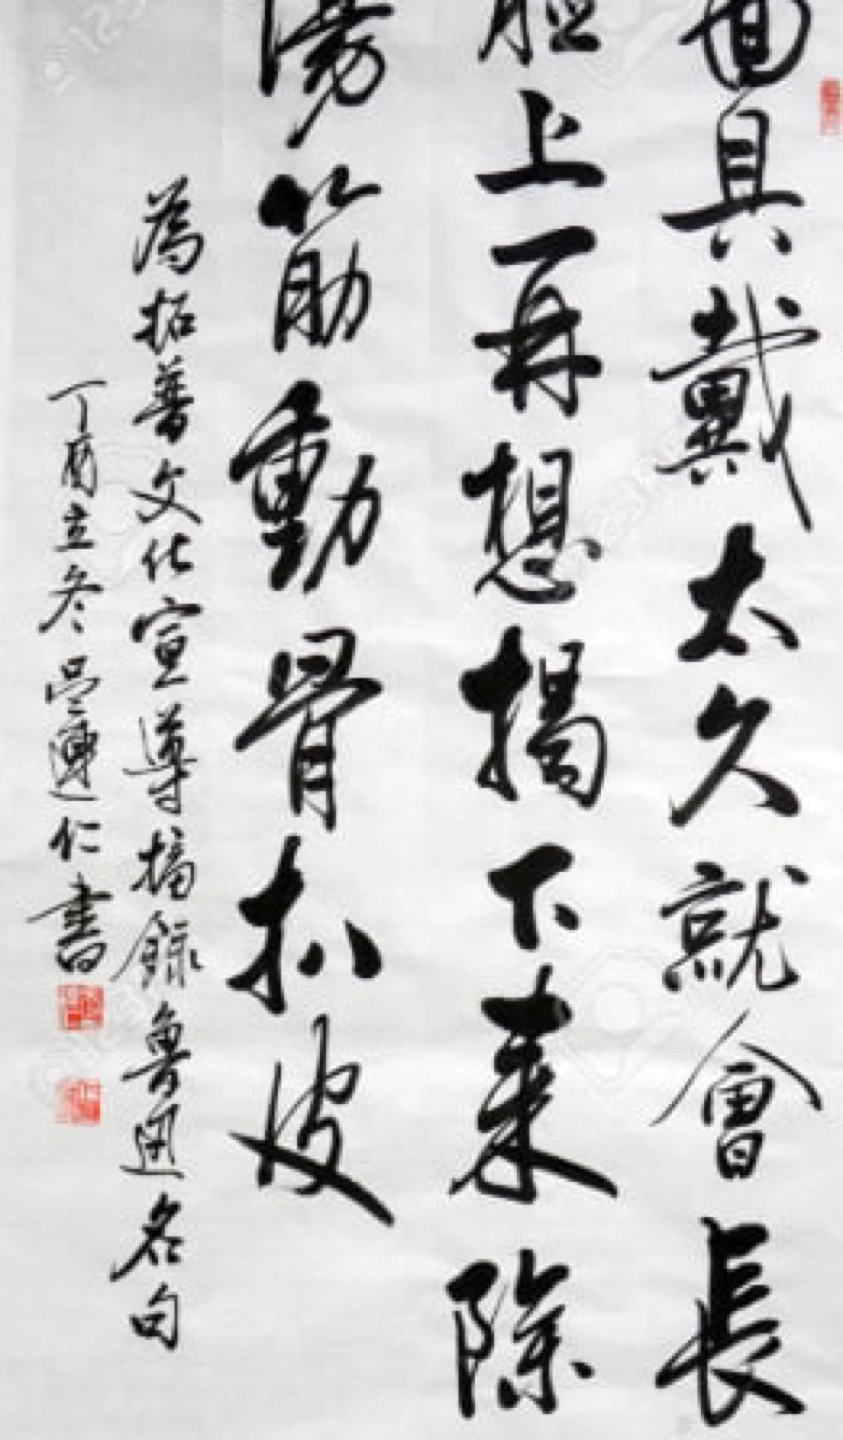 面具戴太久就會長
上再想揭下来除
傷筋動骨扒皮
為拓普文化宣導摘録魯迅名句
丁酉立冬仁書